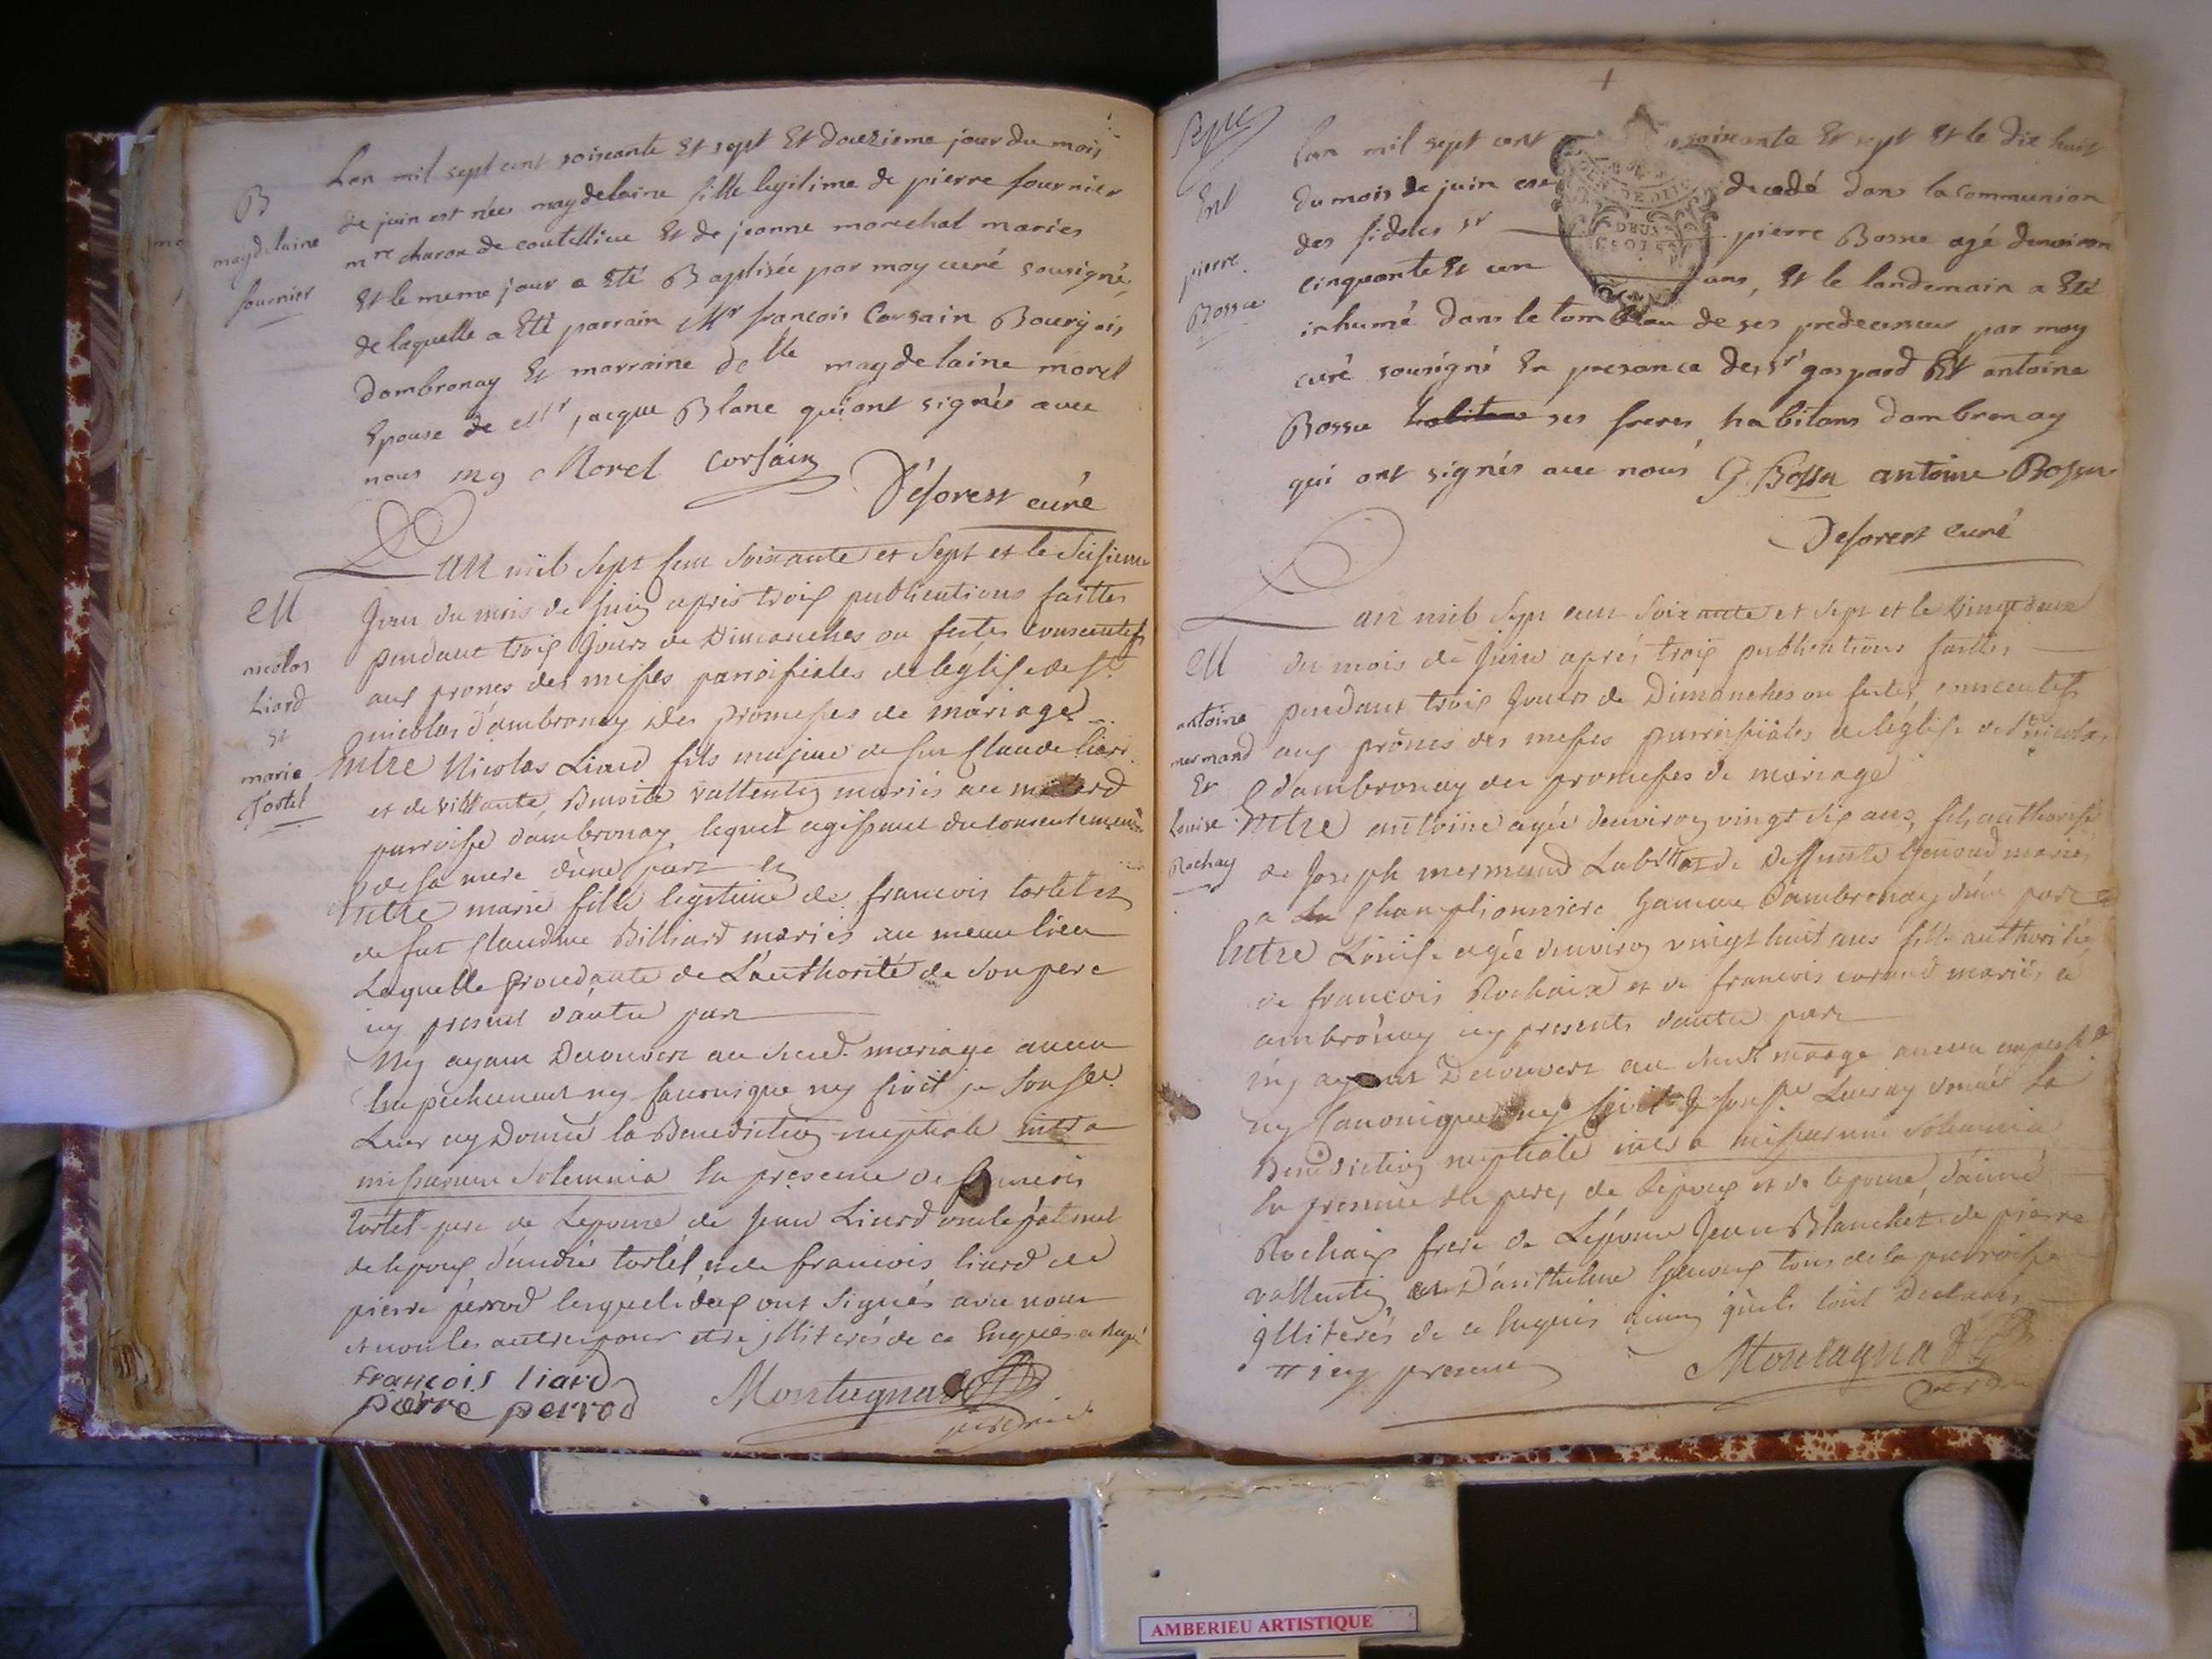 B
magdelaine
fournier
Lan mil sept cent soixante Et sept Et douzieme jour du mois
de juin est née magdelaine fille legitime de pierre fournier
mre charon de coutellieu Et de jeanne marechal maries
Et le meme jour a Eté Baptisée par moy curé sousigné,
de laquelle a Eté parrain Mr francois Corsain Bourgois
dambronay Et marraine delle magdelaine morel
Epouse de Mr jacque Blanc qui ont signés avec
nous mg Morel Corsain
Déforest curé
M
nicolas
Liard
Et
marie
Tortel
Lan mil Sept Cent Soixante et Sept et le Seisieme
Jour du mois de Juin apres trois publications faittes
pendant trois Jours de Dimanches ou festes consecutifs
aux prones des messes parroissiales de léglise de St
nicolas d'ambronay des promesses de mariage
Entre Nicolas Liard fils majeur de feu Claude liard
et de vivante Benoite vallentin mariés au
parroisse d'ambronay lequel agissant du consentement
de sa mere d'une part et
Entre marie fille legitime de francois tortel et
de fut Claudine Billiard mariés au meme lieu
Laquelle procedante de L'authorité de son pere
icy present d'autre part
Ny ayant Decouvert au susd. mariage aucun
Empechement ny Canonique ny Civil je Soussé
Leur ay Donné la Benediction nuptiale intra
missarum Solemnia En presence de francois
tortel pere de Lepouse de Jean Liard oncle paternel
de lepoux d'andré tortel, et de francois liard de
pierre perrod lesquels deux ont Signés avec nous
et non les autres pour etre illiterés de ce Enquis et
francois liard
pierre perrod
Montagnat
Ent
pierre
Bossu
Lan mil sept cent soixante Et sept Et le dix huit
du mois de juin est decedé dans la communion
des fideles Sr pierre Bossu agé denviron
cinquante Et un ans, Et le landemain a Eté
inhumé dans le tombeau de ses predecesseur par moy
curé sousigné En presance des Sr gaspard Et antoine
Bossu habitans ses freres habitans dambronay
qui ont signés avec nous G. Bossu antoine Bossu
Deforest curé
M
antoine
mermand
Et
Louise
Rochay
Lan mil Sept cent Soixante et Sept et le vingt deux
du mois de Juin aprés trois publications faittes
pendant trois Jours de Dimanches ou festes consecutifs
aux prônes des messes parroissiales de léglise de St nicolas
d'ambronay des promesses de mariage
Entre antoine agée denviron vingt six ans, fils authorisé
de Joseph mermand Lab et de Deffunte Genoud mariés
a la Championniere hameau d'ambronay d'une part et
Entre Loüise agée denviron vingt huit ans fille authorisée
de francois Rochaix et de francoise mariés a
ambrônay icy presents dautre part
ny ayant Decouvert au susd. mariage aucun
ny Canonique ny Civil je soussé Leur ay donné la
Benediction nuptiale intra missarum solemnia
En presence des peres de lepoux et de lepouse, d'aimé
Rochaix frere de Lépouse Jean Blanchet de pierre
vallentin et D'anthelme Genoux tous de la parroisse
illiterés de ce Enquis ainsi quils lont Declarés
icy present
Montagnat
AMBERIEU ARTISTIQUE